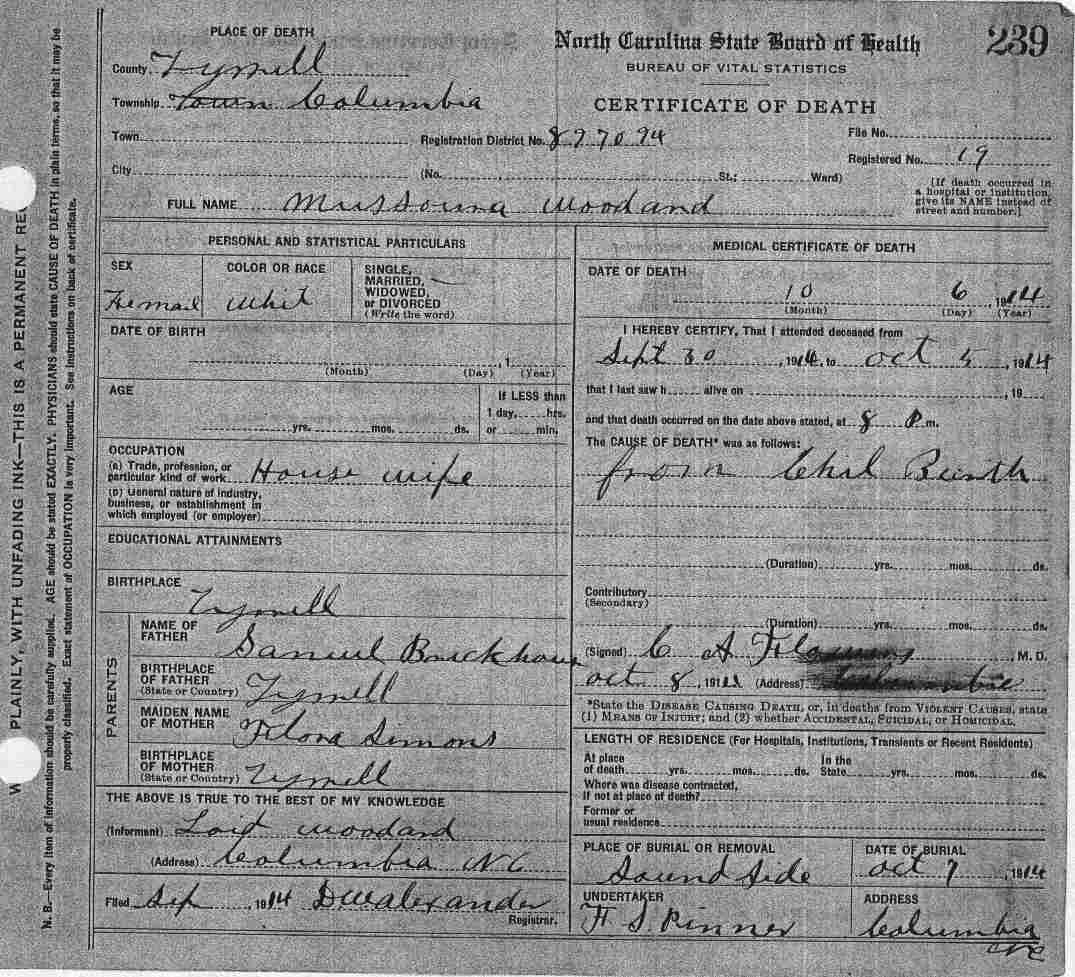 239
North Carolina State Board of Health
BUREAU OF VITAL STATISTICS
CERTIFICATE OF DEATH
PLACE OF DEATH
County Tyrrell
Township Town Columbia
Town
Registration District No. 8977094
File No.
Registered No. 19
City (No. St.; Ward)
[If death occurred in
a hospital or institution,
give its NAME instead of
street and number.]
FULL NAME Mussouria Woodard
PERSONAL AND STATISTICAL PARTICULARS
SEX
Femail
COLOR OR RACE
Whit
SINGLE,
MARRIED,
WIDOWED,
or DIVORCED
(Write the word)
DATE OF BIRTH
, 1
(Month) (Day) (Year)
AGE
yrs. mos. ds.
If LESS than
1 day, hrs.
or min.
OCCUPATION
(a) Trade, profession, or
particular kind of work House wife
(b) General nature of industry,
business, or establishment in
which employed (or employer)
EDUCATIONAL ATTAINMENTS
BIRTHPLACE
Tyrrell
PARENTS
NAME OF
FATHER
Samuel Brickhous
BIRTHPLACE
OF FATHER
(State or Country) Tyrrell
MAIDEN NAME
OF MOTHER
Flora Simons
BIRTHPLACE
OF MOTHER
(State or Country) Tyrrell
THE ABOVE IS TRUE TO THE BEST OF MY KNOWLEDGE
(Informant) Loid Woodard
(Address) Columbia NC
Filed Sep , 1914 DW Alexander
Registrar.
MEDICAL CERTIFICATE OF DEATH
DATE OF DEATH
10 6 , 1914
(Month) (Day) (Year)
I HEREBY CERTIFY, That I attended deceased from
Sept 30 , 1914, to Oct 5 , 1914
that I last saw h alive on , 19
and that death occurred on the date above stated, at 8 P m.
The CAUSE OF DEATH* was as follows:
from Chil Burth
(Duration) yrs. mos. ds.
Contributory
(Secondary)
(Duration) yrs. mos. ds.
(Signed) C A , M. D.
Oct 8, 191 (Address) Columbia
*State the DISEASE CAUSING DEATH, or, in deaths from VIOLENT CAUSES, state
(1) MEANS OF INJURY; and (2) whether ACCIDENTAL, SUICIDAL, or HOMICIDAL.
LENGTH OF RESIDENCE (For Hospitals, Institutions, Transients or Recent Residents)
At place
of death yrs. mos. ds.
In the
State yrs. mos. ds.
Where was disease contracted,
If not at place of death?
Former or
usual residence
PLACE OF BURIAL OR REMOVAL
Sound Side
DATE OF BURIAL
Oct 7 , 1914
UNDERTAKER
H S Pinner
ADDRESS
Columbia
NC
PLAINLY, WITH UNFADING INK—THIS IS A PERMANENT
N. B.—Every item of information should be carefully supplied. AGE should be stated EXACTLY. PHYSICIANS should state CAUSE OF DEATH in plain terms, so that it may be
properly classified. Exact statement of OCCUPATION is very important. See instructions on back of certificate.